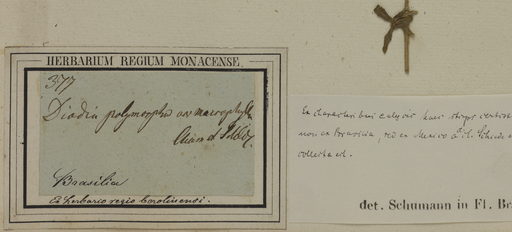 HERBARIUM REGIUM MONACENSE.
377
Diodia polymorpha var macrophylla
Cham et Schldl.
Brasilia
Ex herbario regio berolinensi.
Ex characteribus calycis haec stirps certiss
non ex Brasilia, sed ex Mexico a cl. Schiede
collecta est.
det. Schumann in Fl. Br